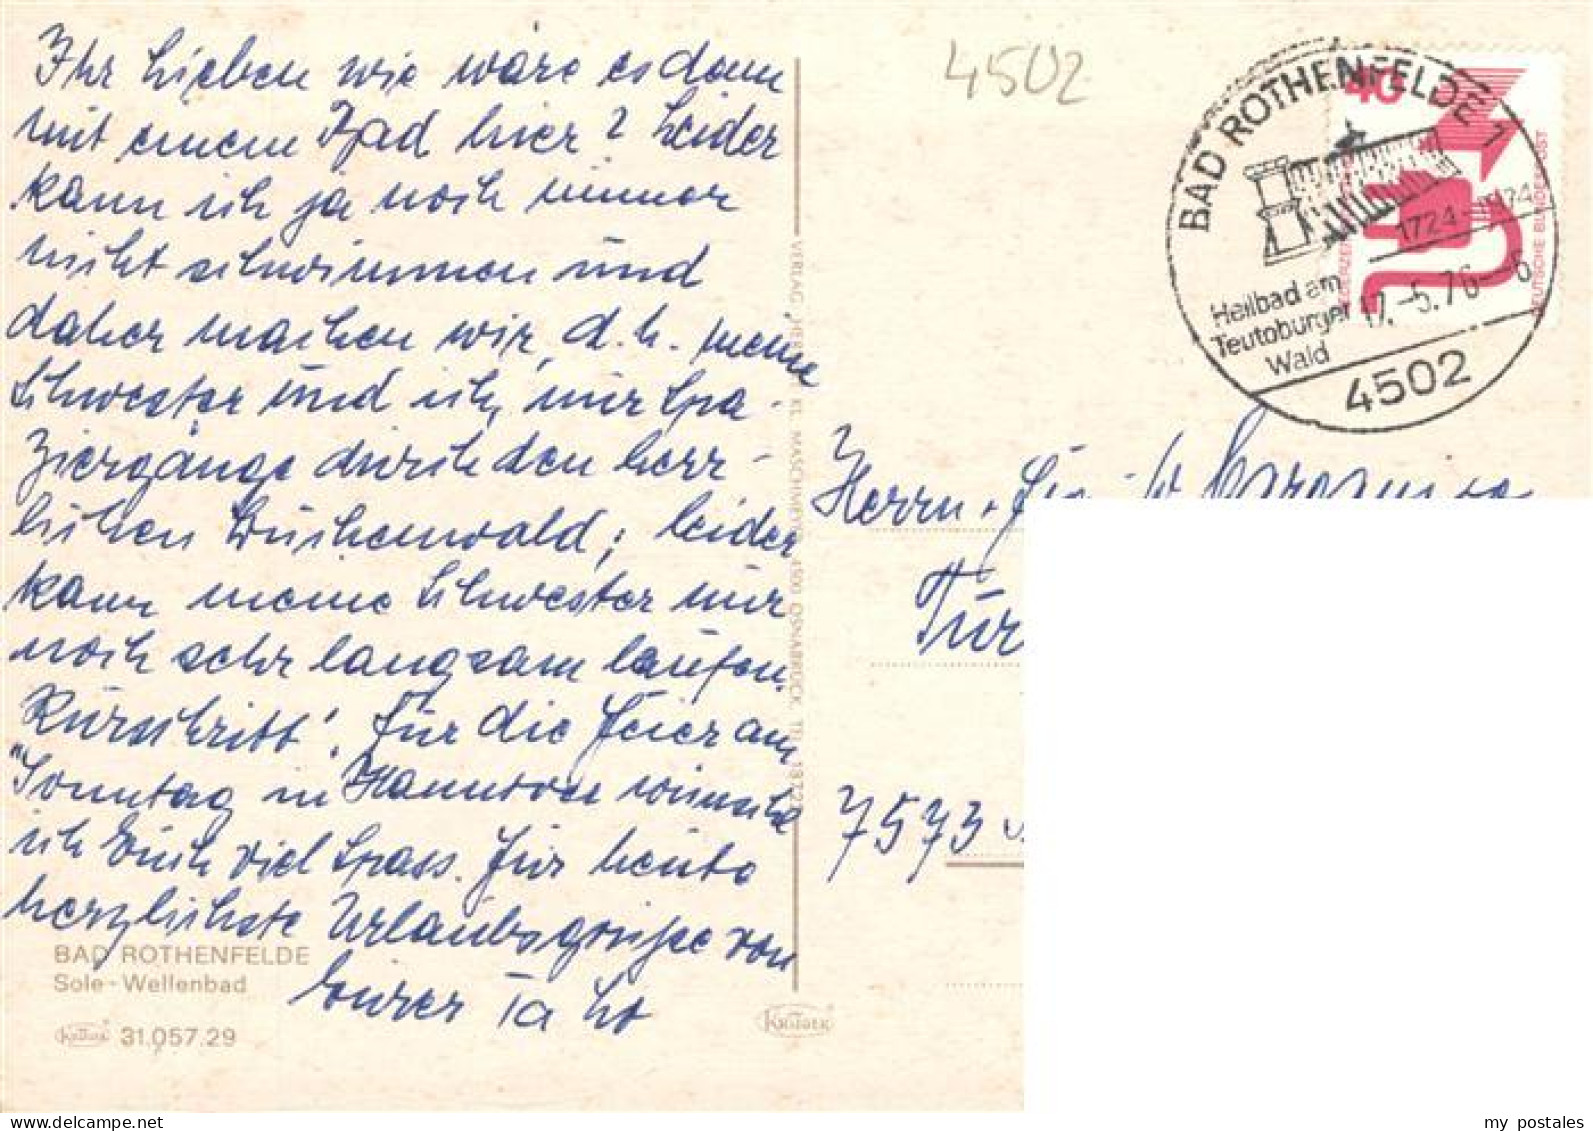 Ihr Lieben wie wäre es denn
mit einem Bad hier? Leider
kann ich ja noch immer
nicht schwimmen und
daher machen wir, d. h. meine
Schwester und ich, nur Spa-
ziergänge durch den herr-
lichen Buchenwald; leider
kann meine Schwester nur
noch sehr langsam laufen.
Kurschritt! Für die Feier am
Sonntag in Hannover wünsche
ich Euch viel Spass. Für heute
herzlichste Urlaubsgrüsse von
Eurer
BAD ROTHENFELDE
Sole-Wellenbad
KRÜGER 31.057.29
VERLAG HERB. KL. MASCHMEYER, 4500 OSNABRÜCK, TEL.
KRÜGER
4502
BAD ROTHENFELDE 1
1724-1974
Heilbad am
Teutoburger
Wald
17.-5.76-6
4502
40
DEUTSCHE BUNDESPOST
Herrn
7573
my postales
delcampe.net